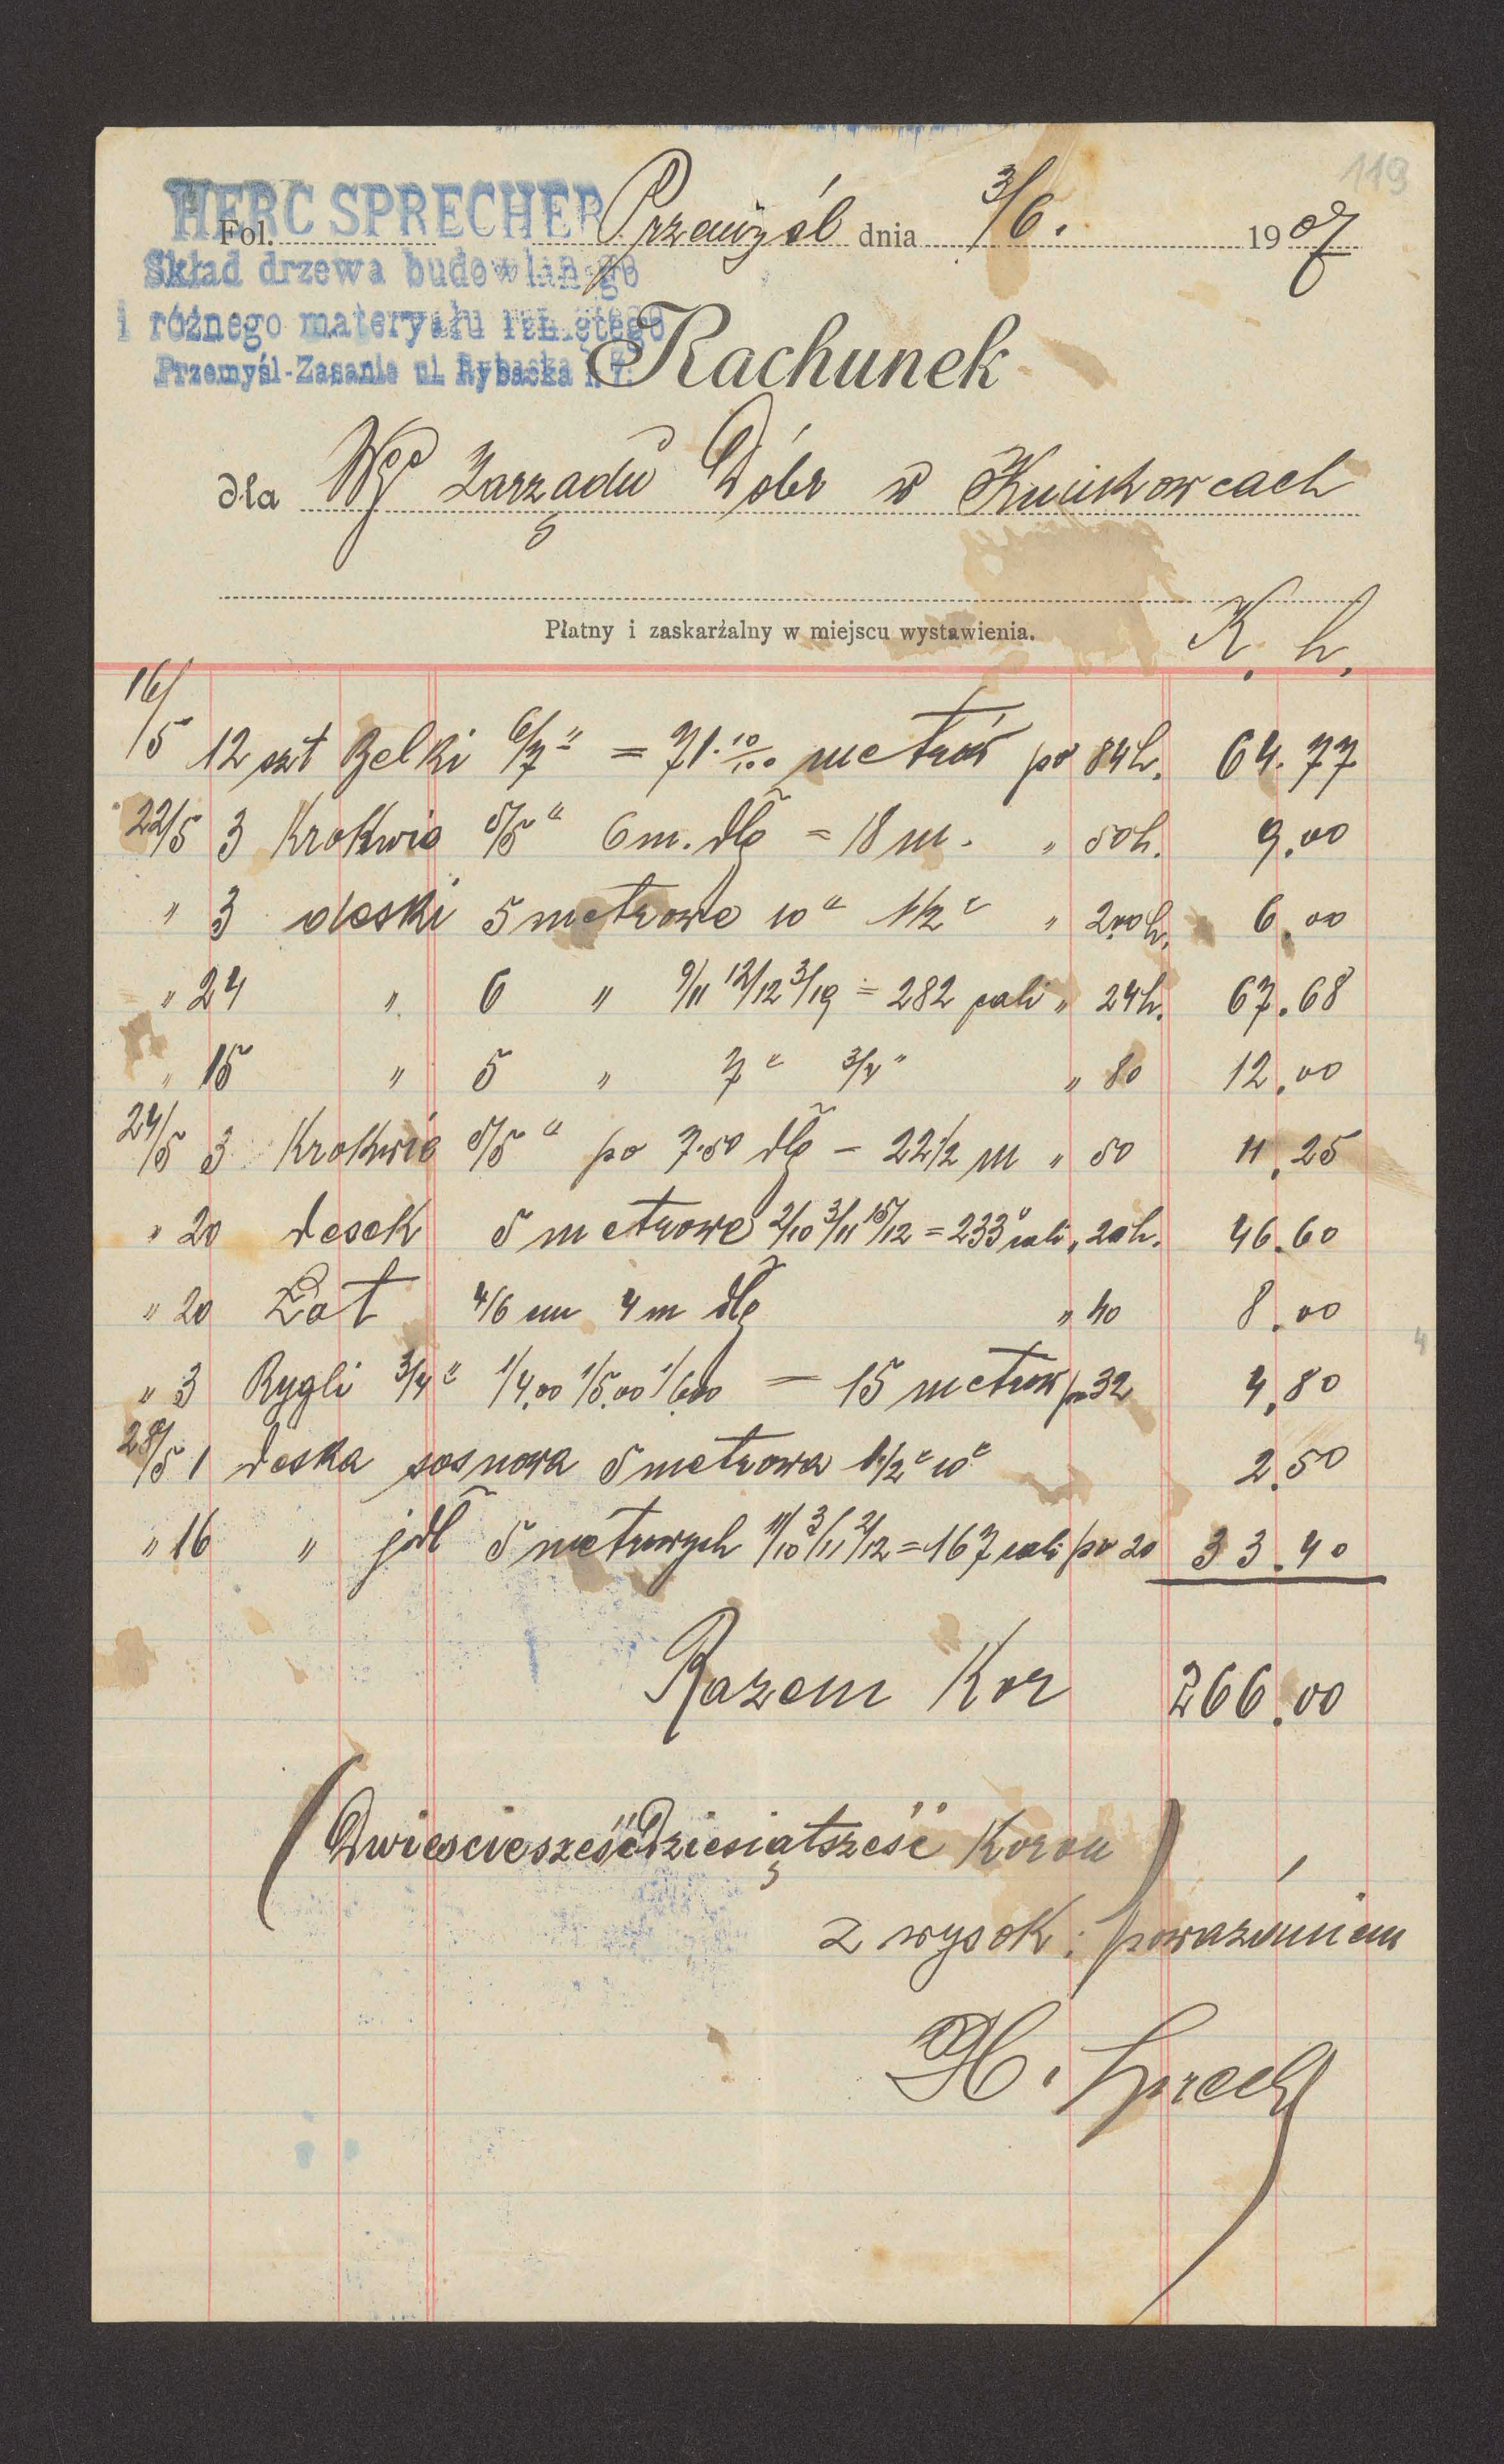 119
HERC SPRECHER
Fol. Przemyśl dnia 3/6. 1907
Skład drzewa budowlanego
i różnego materyału rzniętego
Przemyśl-Zasanie ul. Rybacka
Rachunek
dla Zarządu Dóbr w
Płatny i zaskarżalny w miejscu wystawienia.
K. h.
16/5 12 szt Belki 6/7" = 71.10/100 metrów po 84h. 64.77
22/5 3 Krokwie 5/5" 6 m. dłg = 18 m. " 50h. 9.00
" 3 deski 5 metrowe 10" 1 1/2" " 200h. 6.00
" 24 " 6 " 9/11 12/12 3/19 = 282 cali " 24h. 67.68
" 15 " 5 " 7" 3/4" " 80 12.00
24/5 3 Krokwie 5/5" po 7.50 dłg – 22 1/2 m " 50 11.25
" 20 desek 5 metrowe 2/10 3/11 15/12 = 233" cali " 20h. 46.60
" 20 Łat 4/6 cm 4 m dłg " 40 8.00
" 3 Rygli 3/4" 1/4.00 1/5.00 1/6.00 = 15 metrów po 32 4.80
28/5 1 deska sosnowa 5 metrowa 1 1/2" 10" 2.50
" 16 " jdł 5 metrowych 11/10 3/11 2/12 = 167 cali po 20 33.40
Razem Kor 266.00
(Dwieściesześćdziesiątsześć Koron)
z wysok. poważaniem
H. Sprech